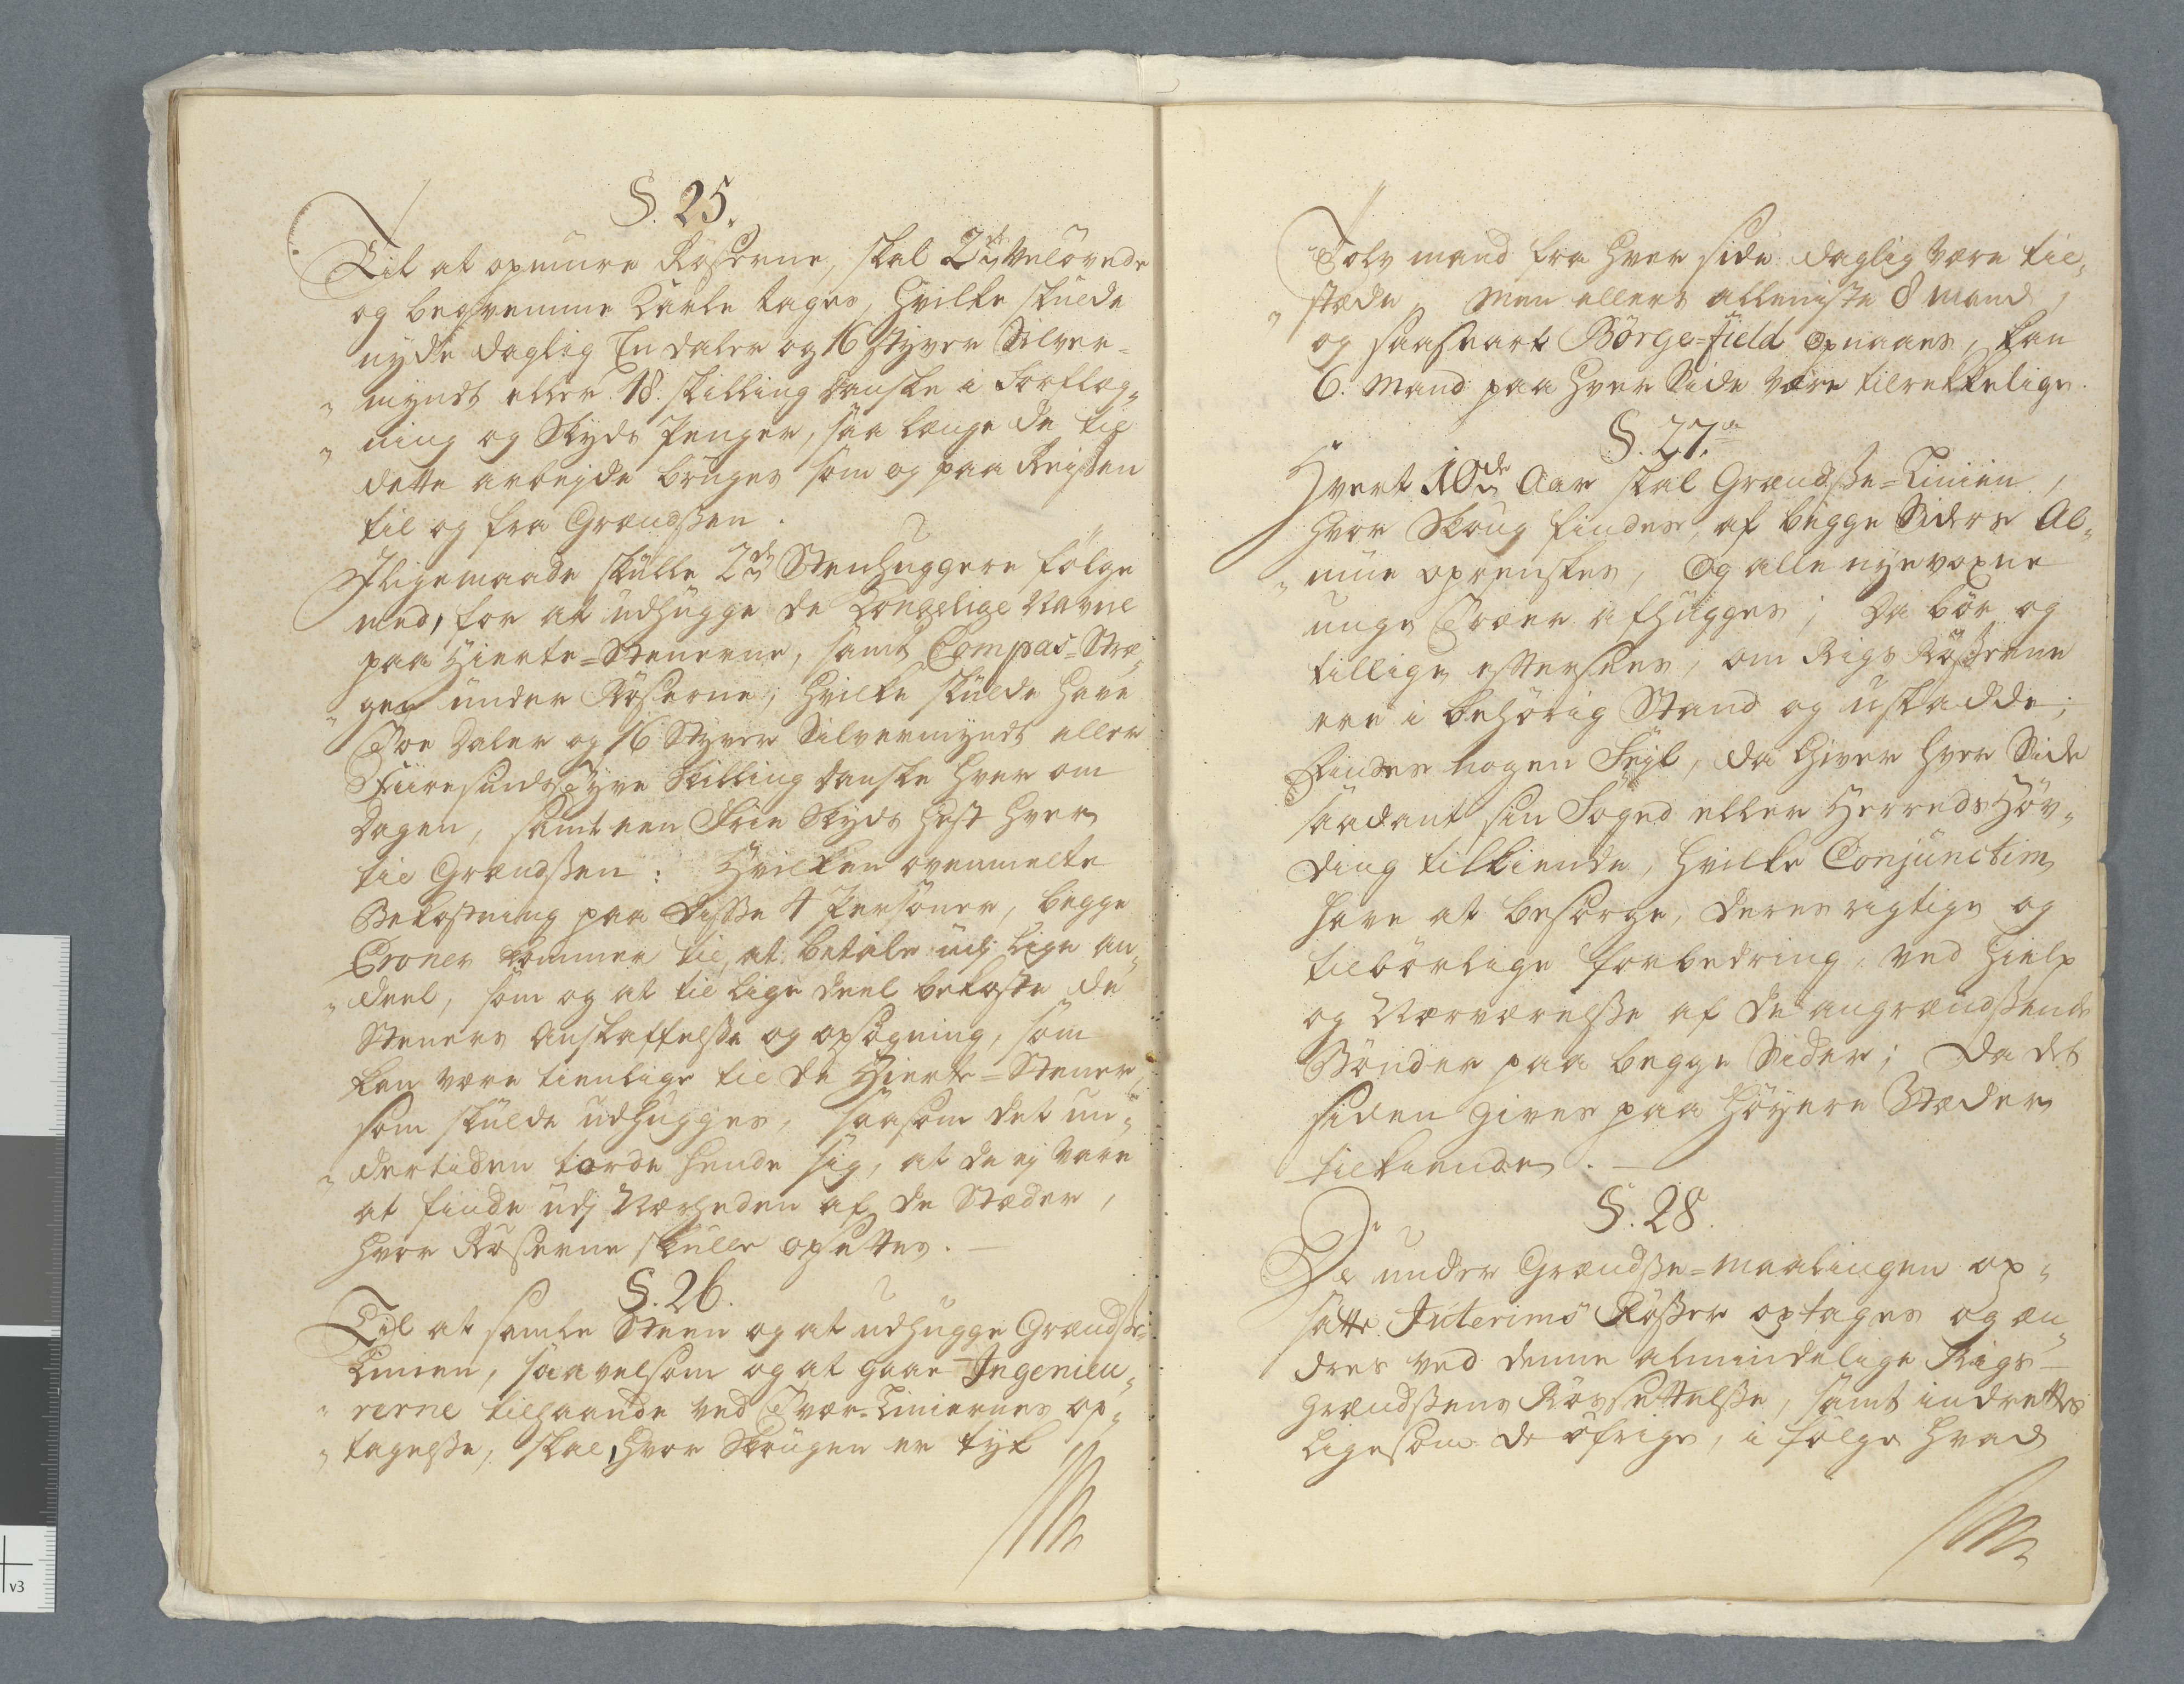 §. 25.
Til at opmure Röserne, skal 2de Velövede
og beqvemme Karle tages, hvilke skulde
nyde daglig En daler og 16 Styver Silver=
myndt eller 18. skilling danske i Forplæg„
„ning og Skyds Penger, saa længe de til
dette arbejde bruges som og paa Reissen
til og fra Grændssen.
Iligemaade skulle 2de Steenhuggere følge
med, for at udhugge de Kongelige Navne
paa Hierte=Stenerne, samt Compas=Stræ„
„gen under Röserne; hvilke skulde have
Toe Daler og 16 Styver Silvermyndt eller
Fiiresindstyve Skilling danske hver om
Dagen, samt een Frie Skyds hest hver
til Grændssen: Hvilken ovenmelte
Bekostning paa disse 4 Personer, begge
Croner kommer til, at betale udj lige an„
„deel, som og at til lige deel bekoste de
Steners Anskaffelsse og opsögning, som
kan være tienlige til de Hierte=Stener,
som skulde udhugges, saasom det un„
„dertiden torde hende sig, at de ej vare
at finde udj Nærheden af de Stæder,
hvor Röserne skulle opsættes.
§. 26.
Til at samle Steen og at udhugge Grændsse=
Linien, saavelsom og at gaae Ingenieu„
„rerne tilhaande ved Tvær=Liniernes op„
„tagelsse, skal, hvor Skougen er tyk
Tolv mand fra hver side daglig være til„
„stæde, men ellers alleniste 8 mand,
og saasnart Börge=field opnaaes, kan
6. Mand paa hver Side være tilrekkelige.
§. 27.
Hvert 10de Aar skal Grændsse=Linien,
hvor Skoug findes, af begge Siders Al„
„mue oprenskes, og alle nyevoxne
unge Træer afhugges; Da bör og
tillige eftersees, om Rigs Rösserne
ere i behörig Stand og uskadde;
Findes nogen Fejl, da giver hver Side
saadant sin Foged eller Herreds Höv„
ding tilkiende, hvilke Conjunctim
have at besörge, deres rigtige og
tilbörlige forbedring, ved hielp
og Nærværelsse af de angrændssende
Bönder paa begge Sider; Da det
siden gives paa Höyere Stæder
tilkiende.
§. 28.
De under Grændsse=maalingen op„
satte Interims Rösser optages og æn„
dres ved denne almindelige Rigs=
Grændssens Rössettelsse, samt indrettes
ligesom de öfrige, i fölge hvad